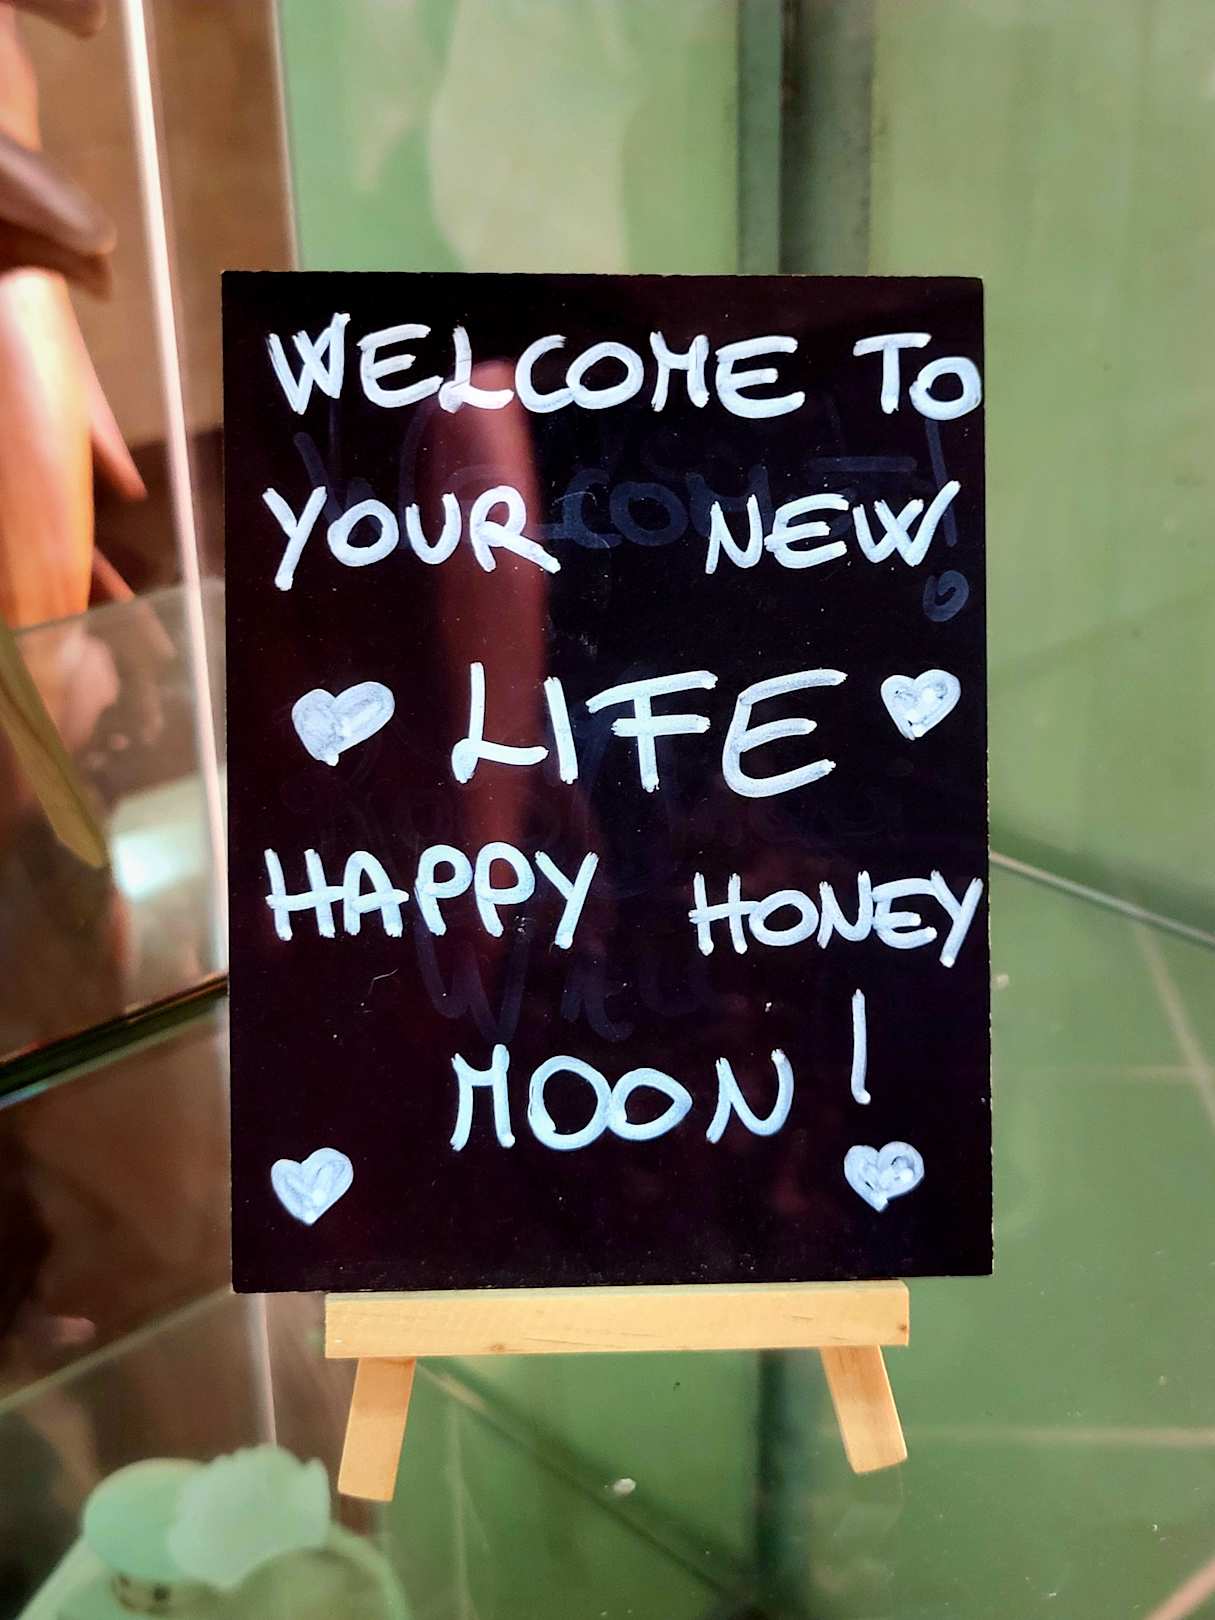 WELCOME TO
YOUR NEW
LIFE
HAPPY HONEY
MOON!